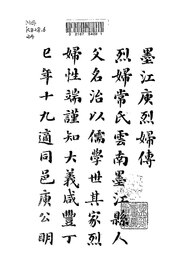 墨江庾烈婦傳
烈婦常氏雲南墨江縣人
父名治以儒學世其家烈
婦性端謹知大義咸豐丁
巳年十九適同邑庾公明